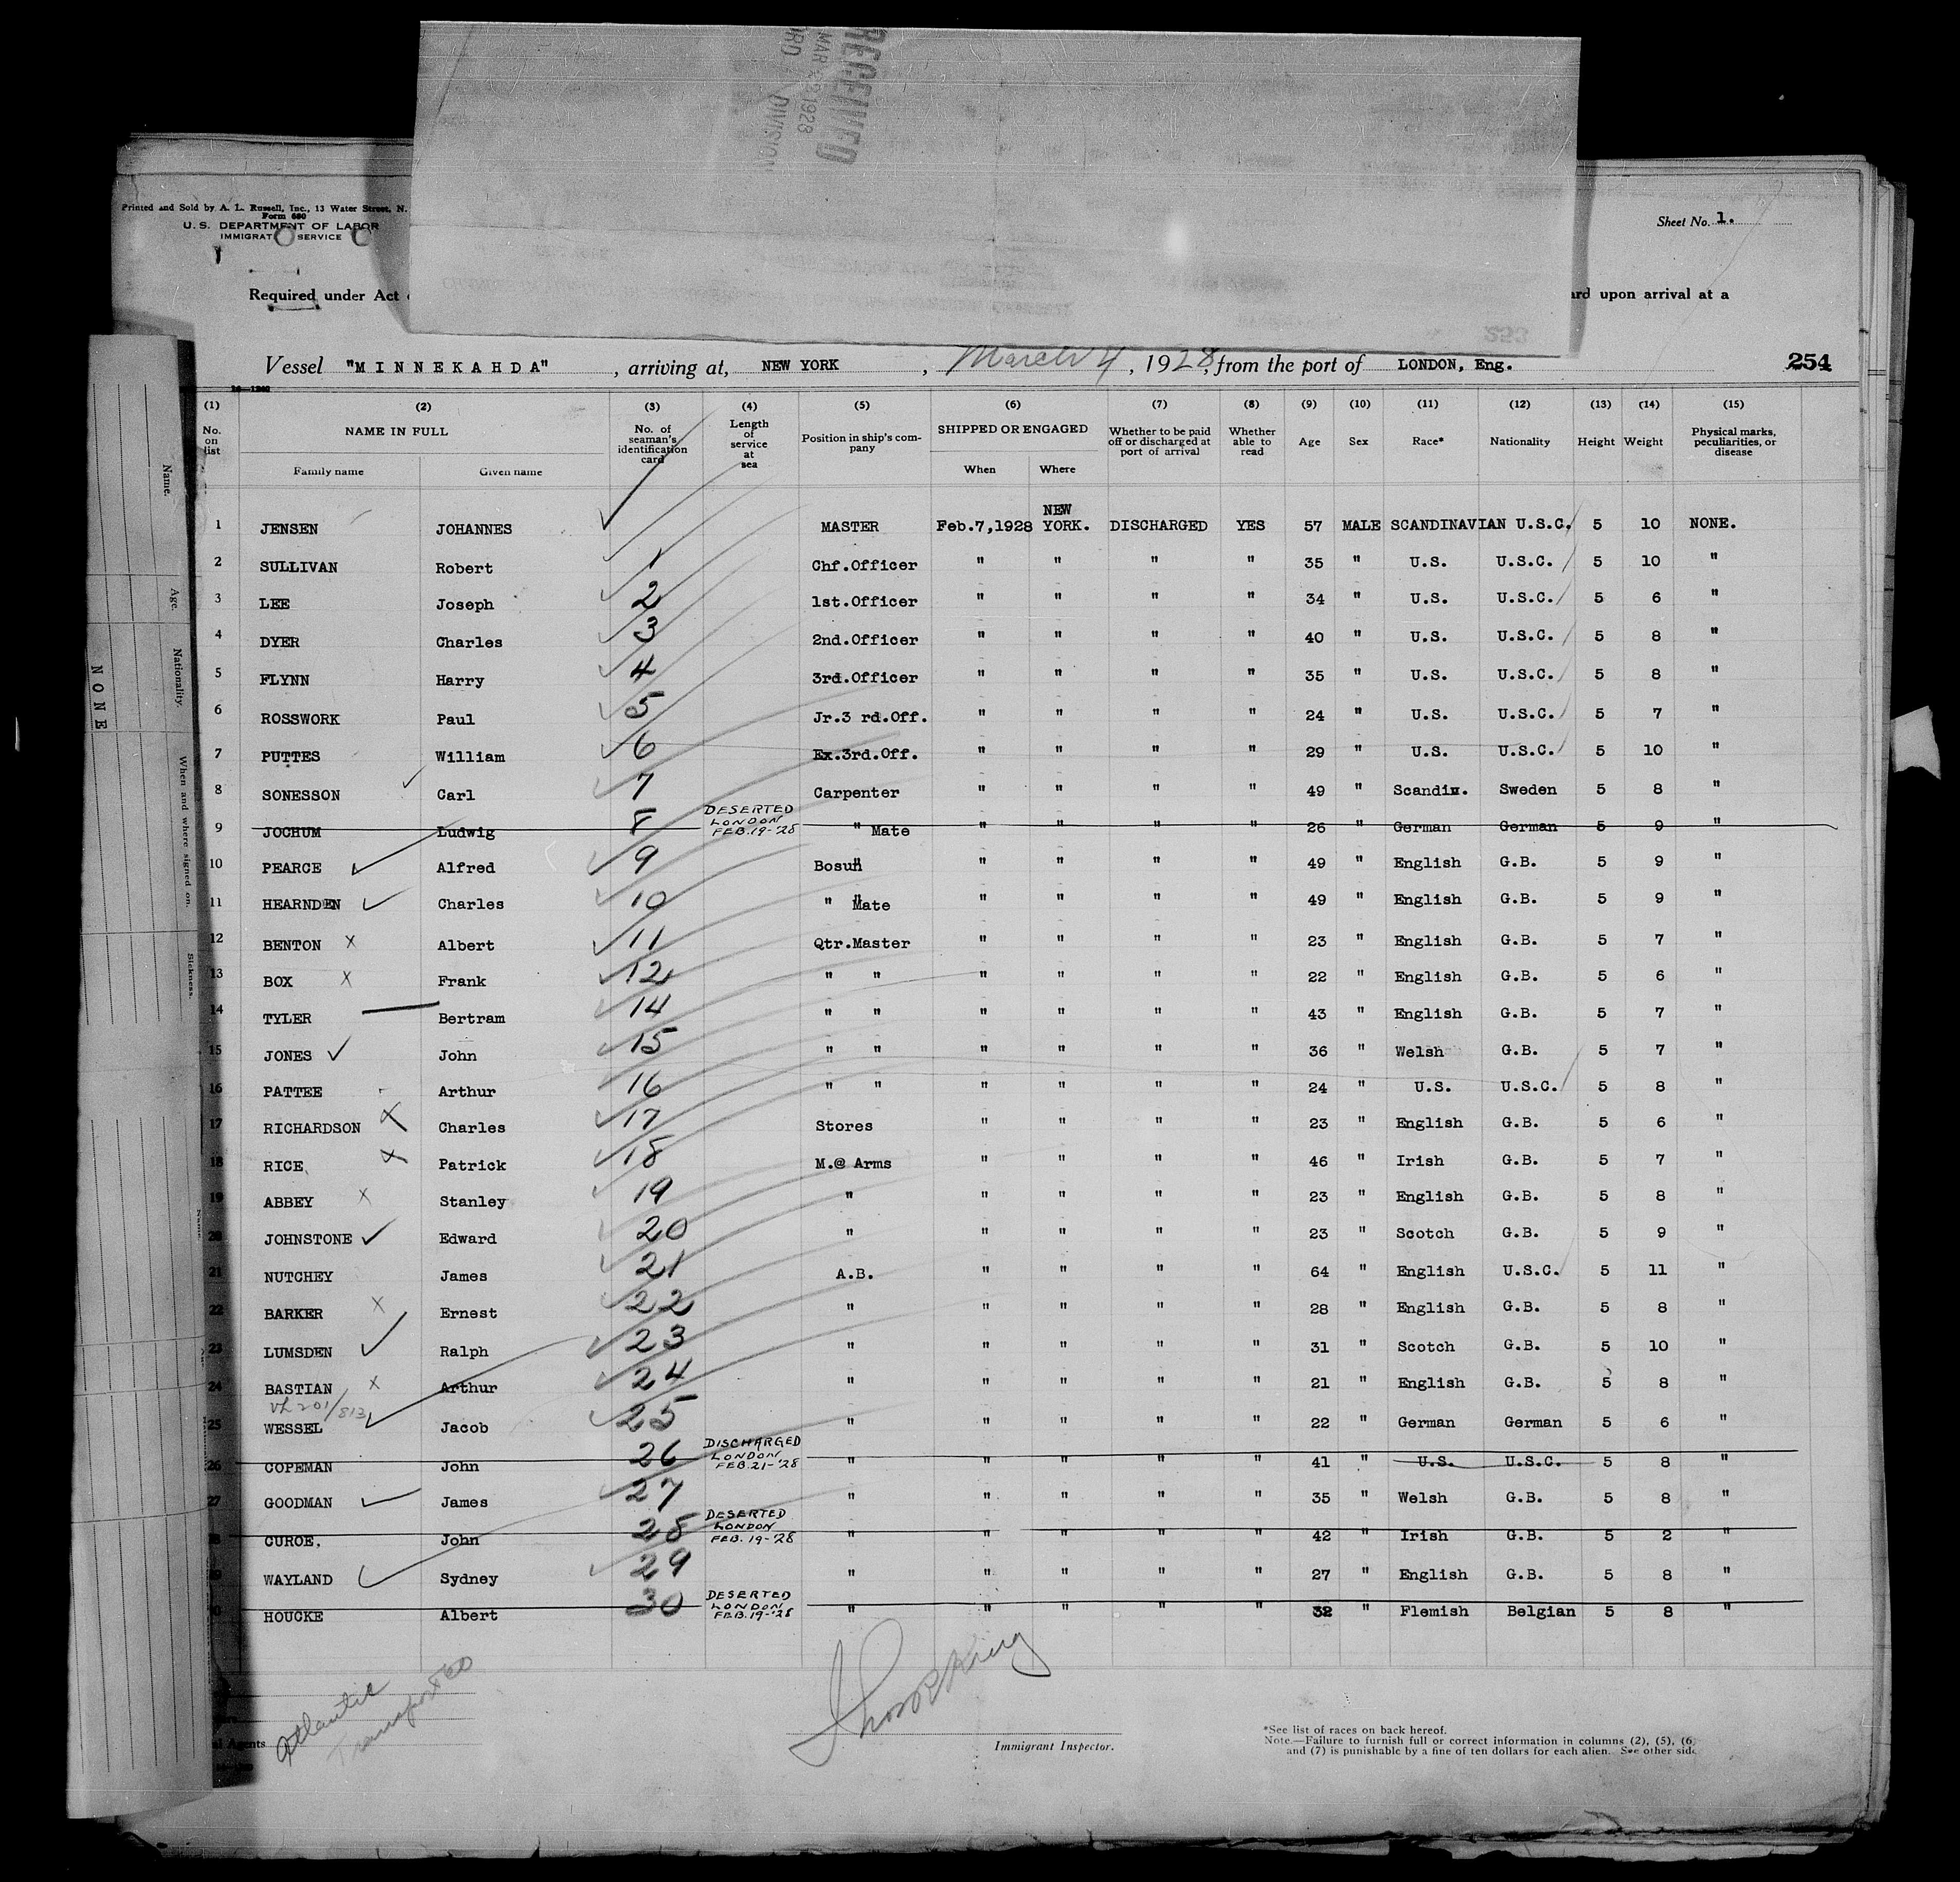 RECEIVED
MAR 22 1928
DIVISION
Printed and Sold by A. L. Russell, Inc., 13 Water Street, N.
Form 680
U. S. DEPARTMENT OF LABOR
IMMIGRAT SERVICE
Sheet No. 1.
Required under Act
ard upon arrival at a
Vessel "MINNEKAHDA", arriving at, NEW YORK, March 4, 1928, from the port of LONDON, Eng. 254
(1) (2) (3) (4) (5) (6) (7) (8) (9) (10) (11) (12) (13) (14) (15)
No. on list NAME IN FULL Family name Given name No. of seaman's identification card Length of service at sea Position in ship's company SHIPPED OR ENGAGED When Where Whether to be paid off or discharged at port of arrival Whether able to read Age Sex Race* Nationality Height Weight Physical marks, peculiarities, or disease
1 JENSEN JOHANNES MASTER Feb.7,1928 NEW YORK. DISCHARGED YES 57 MALE SCANDINAVIAN U.S.C. 5 10 NONE.
2 SULLIVAN Robert 1 Chf.Officer " " " " 35 " U.S. U.S.C. 5 10 "
3 LEE Joseph 2 1st.Officer " " " " 34 " U.S. U.S.C. 5 6 "
4 DYER Charles 3 2nd.Officer " " " " 40 " U.S. U.S.C. 5 8 "
5 FLYNN Harry 4 3rd.Officer " " " " 35 " U.S. U.S.C. 5 8 "
6 ROSSWORK Paul 5 Jr.3 rd.Off. " " " " 24 " U.S. U.S.C. 5 7 "
7 PUTTES William 6 Ex.3rd.Off. " " " " 29 " U.S. U.S.C. 5 10 "
8 SONESSON Carl 7 Carpenter " " " " 49 " Scandin. Sweden 5 8 "
9 JOCHUM Ludwig 8 DESERTED LONDON FEB.19-'28 " Mate " " " " 26 " German German 5 9 "
10 PEARCE Alfred 9 Bosun " " " " 49 " English G.B. 5 9 "
11 HEARNDEN Charles 10 " Mate " " " " 49 " English G.B. 5 9 "
12 BENTON X Albert 11 Qtr.Master " " " " 23 " English G.B. 5 7 "
13 BOX X Frank 12 " " " " " " 22 " English G.B. 5 6 "
14 TYLER Bertram 14 " " " " " " 43 " English G.B. 5 7 "
15 JONES John 15 " " " " " " 36 " Welsh G.B. 5 7 "
16 PATTEE Arthur 16 " " " " " " 24 " U.S. U.S.C. 5 8 "
17 RICHARDSON X Charles 17 Stores " " " " 23 " English G.B. 5 6 "
18 RICE X Patrick 18 M.@ Arms " " " " 46 " Irish G.B. 5 7 "
19 ABBEY X Stanley 19 " " " " " 23 " English G.B. 5 8 "
20 JOHNSTONE Edward 20 " " " " " 23 " Scotch G.B. 5 9 "
21 NUTCHEY James 21 A.B. " " " " 64 " English U.S.C. 5 11 "
22 BARKER X Ernest 22 " " " " " 28 " English G.B. 5 8 "
23 LUMSDEN Ralph 23 " " " " " 31 " Scotch G.B. 5 10 "
24 BASTIAN X Arthur 24 " " " " " 21 " English G.B. 5 8 "
201/813
25 WESSEL Jacob 25 " " " " " 22 " German German 5 6 "
26 COPEMAN John 26 DISCHARGED LONDON FEB.21-'28 " " " " " 41 " U.S. U.S.C. 5 8 "
27 GOODMAN James 27 " " " " " 35 " Welsh G.B. 5 8 "
28 CUROE, John 28 DESERTED LONDON FEB.19-'28 " " " " " 42 " Irish G.B. 5 2 "
29 WAYLAND Sydney 29 " " " " " 27 " English G.B. 5 8 "
30 HOUCKE Albert 30 DESERTED LONDON FEB.19-'28 " " " " " 32 " Flemish Belgian 5 8 "
Atlantic
Transport Co
Agents
Immigrant Inspector.
*See list of races on back hereof.
Note.—Failure to furnish full or correct information in columns (2), (5), (6)
and (7) is punishable by a fine of ten dollars for each alien. See other side
Name.
Age.
Nationality.
When and where signed on.
Sickness.
NONE